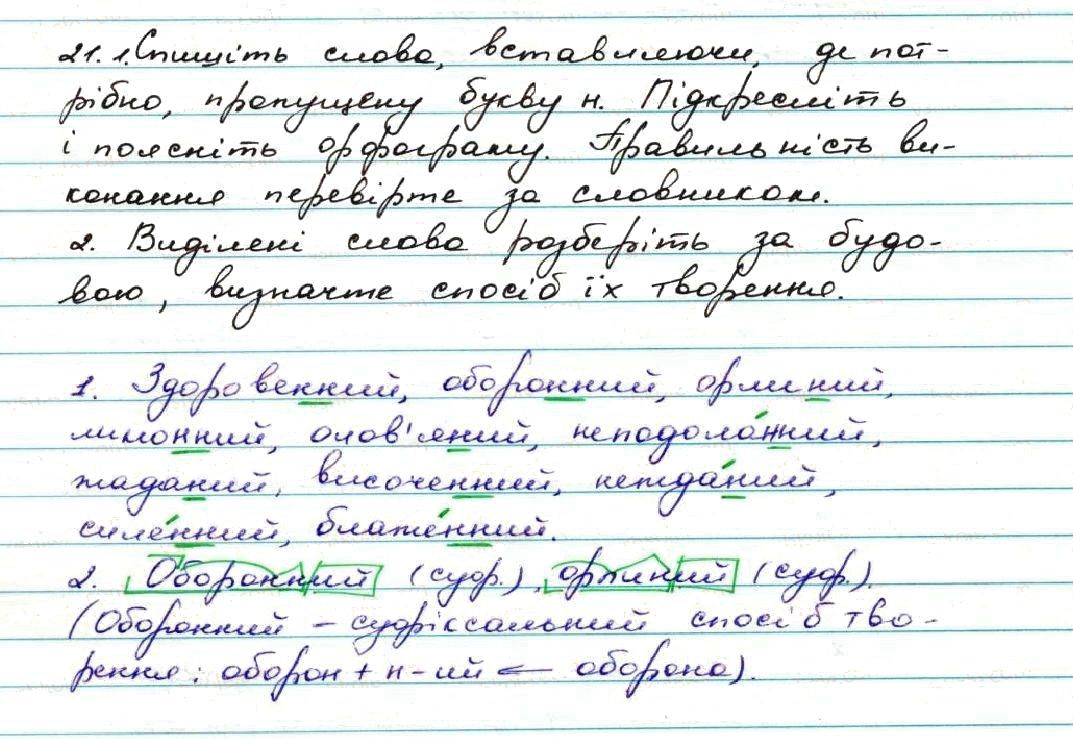 21. 1. Спишіть слова, вставляючи, де пот-
рібно, пропущену букву н. Підкресліть
і поясніть орфограму. Правильність ви-
конання перевірте за словником.
2. Виділені слова розберіть за будо-
вою, визначте спосіб їх творення.
1. Здоровенний, оборонний, орлиний,
лимонний, олов'яний, неподола́нний,
жаданий, височенний, нежда́ний,
силе́нний, блаже́нний.
2. Оборонний (суф.), орлиний (суф.).
(Оборонний – суфіксальний спосіб тво-
рення: оборон + н - ий ← оборона).